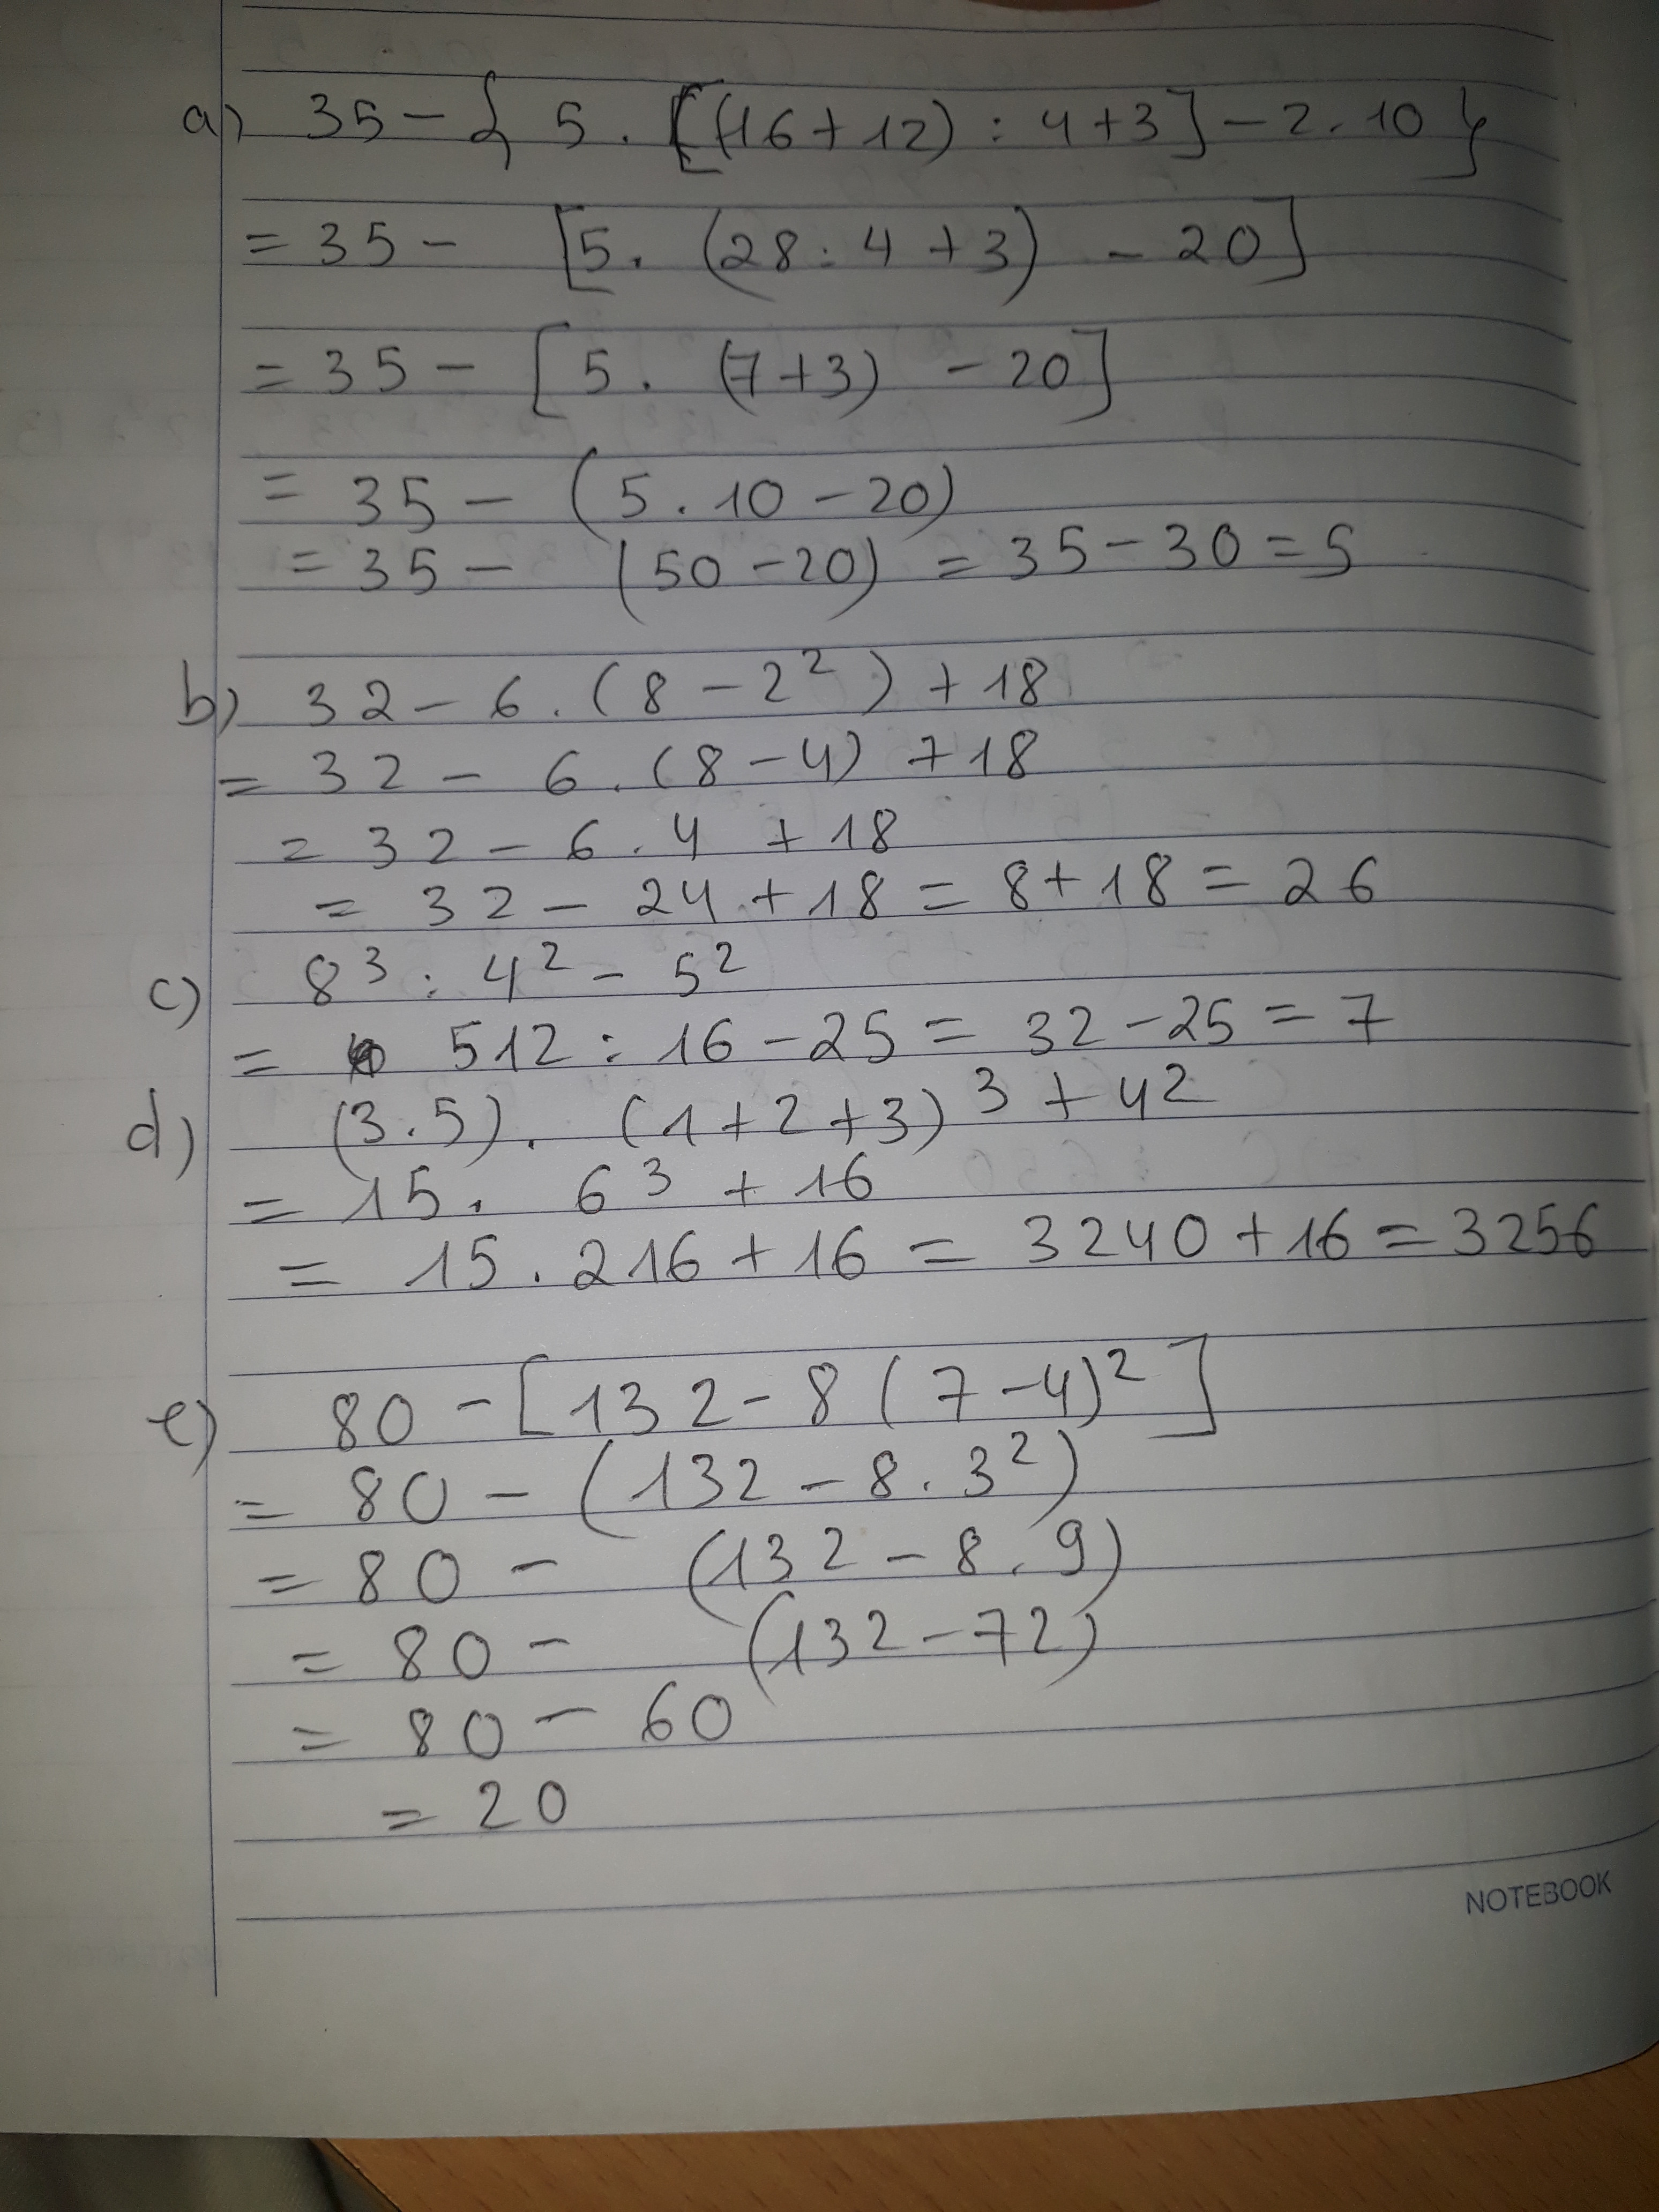 a) 35 - { 5 . [(16 + 12) : 4 + 3] - 2 . 10 }
= 35 - [5 . (28 : 4 + 3) - 20]
= 35 - [5 . (7 + 3) - 20]
= 35 - (5 . 10 - 20)
= 35 - (50 - 20) = 35 - 30 = 5
b) 32 - 6 . (8 - 2²) + 18
= 32 - 6 . (8 - 4) + 18
= 32 - 6 . 4 + 18
= 32 - 24 + 18 = 8 + 18 = 26
c) 8³ : 4² - 5²
= 512 : 16 - 25 = 32 - 25 = 7
d) (3 . 5) . (1 + 2 + 3)³ + 4²
= 15 . 6³ + 16
= 15 . 216 + 16 = 3240 + 16 = 3256
e) 80 - [132 - 8 (7 - 4)²]
= 80 - (132 - 8 . 3²)
= 80 - (132 - 8 . 9)
= 80 - (132 - 72)
= 80 - 60
= 20
NOTEBOOK